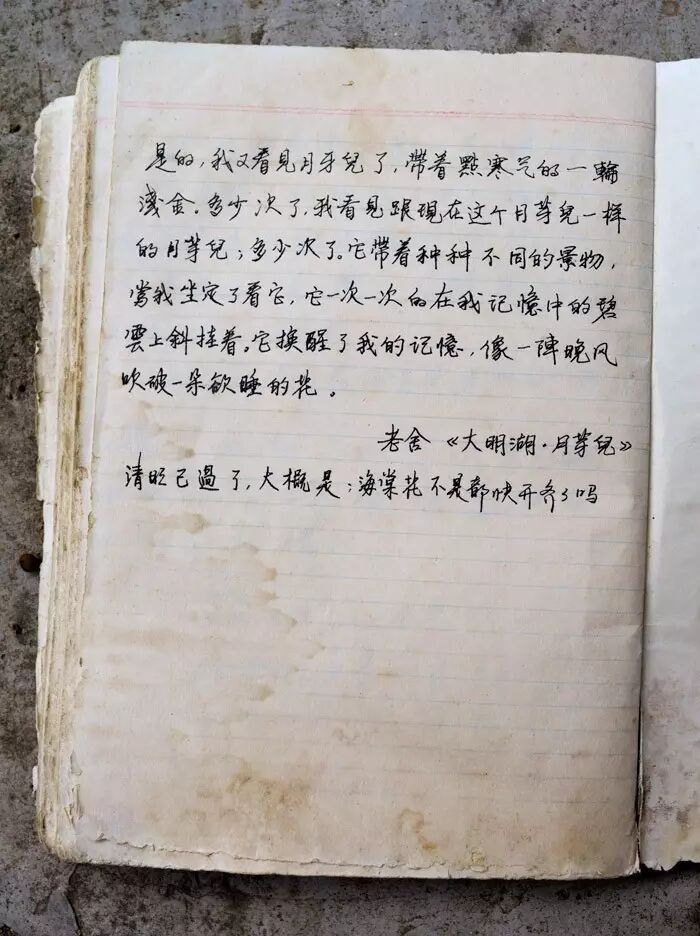 是的，我又看见月牙兒了，帶着點寒气的一輪
淺金。多少次了，我看見跟現在这个月芽兒一样
的月芽兒；多少次了。它帶着种种不同的景物，
當我坐定了看它，它一次一次的在我记憶中的碧
雲上斜挂着。它换醒了我的记憶，像一陣晚风
吹破一朵欲睡的花。
老舍《大明湖·月芽兒》
清明已過了，大概是；海棠花不是都快开齐了吗